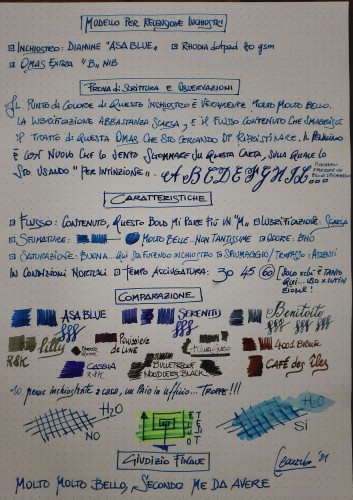 MODELLO PER RECENSIONE INCHIOSTRI
INCHIOSTRO: DIAMINE "ASA BLUE" RHODIA dotpad 80 gsm
OMAS EXTRA "B" NIB
PROVA DI SCRITTURA E OSSERVAZIONI
IL PUNTO DI COLORE DI QUESTO INCHIOSTRO È VERAMENTE MOLTO MOLTO BELLO.
LA LUBRIFICAZIONE ABBASTANZA SCARSA, E IL FLUSSO CONTENUTO CHE SMAGRISCE
IL TRATTO DI QUESTA OMAS CHE STO CERCANDO DI RIPRISTINARE. IL PENNINO
È COSÌ NUOVO CHE LO SENTO SU QUESTA CARTA, SULLA QUALE LO
STO USANDO "PER INTINZIONE".
A B C D E F G H I L
CARATTERISTICHE
FLUSSO: CONTENUTO, QUESTO BOLD MI PARE PIÙ UN "M" LUBRIFICAZIONE: SCARSA
SFUMATURE: MOLTO BELLE... NON TANTISSIME ODORE: BHO
SATURAZIONE: BUONA.. QUI STA FINENDO INCHIOSTRO SPIUMAGGIO/TRAPASSO: ASSENTI
IN CONDIZIONI NORMALI TEMPO ASCIUGATURA: 30 45 60 SOLO CHE È TANTO
QUI... USO X INTIN
ZIONE!
COMPARAZIONE
ASA BLUE SERENITY Benitoite
Lilly R&K Poussière de Lune 4001 BROWN
CASSIA R&K BULLETPROOF NOODLER'S BLACK CAFÉ des îles
10 penne inchiostrate a casa, un paio in ufficio... TROPPE!!!
H2O H2O
NO SÌ
GIUDIZIO FINALE
MOLTO MOLTO BELLO, SECONDO ME DA AVERE